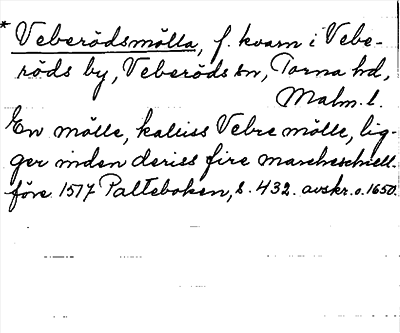 * Veberödsmölla, f. kvarn i Vebe-
röds by, Veberöds sn, Torna hd,
Malm. l.
En mölle, kaliiss Vebre mölle, lig-
ger inden deriss fire marcheschiell.
före 1517 Palteboken, s. 432. avskr. o. 1650.